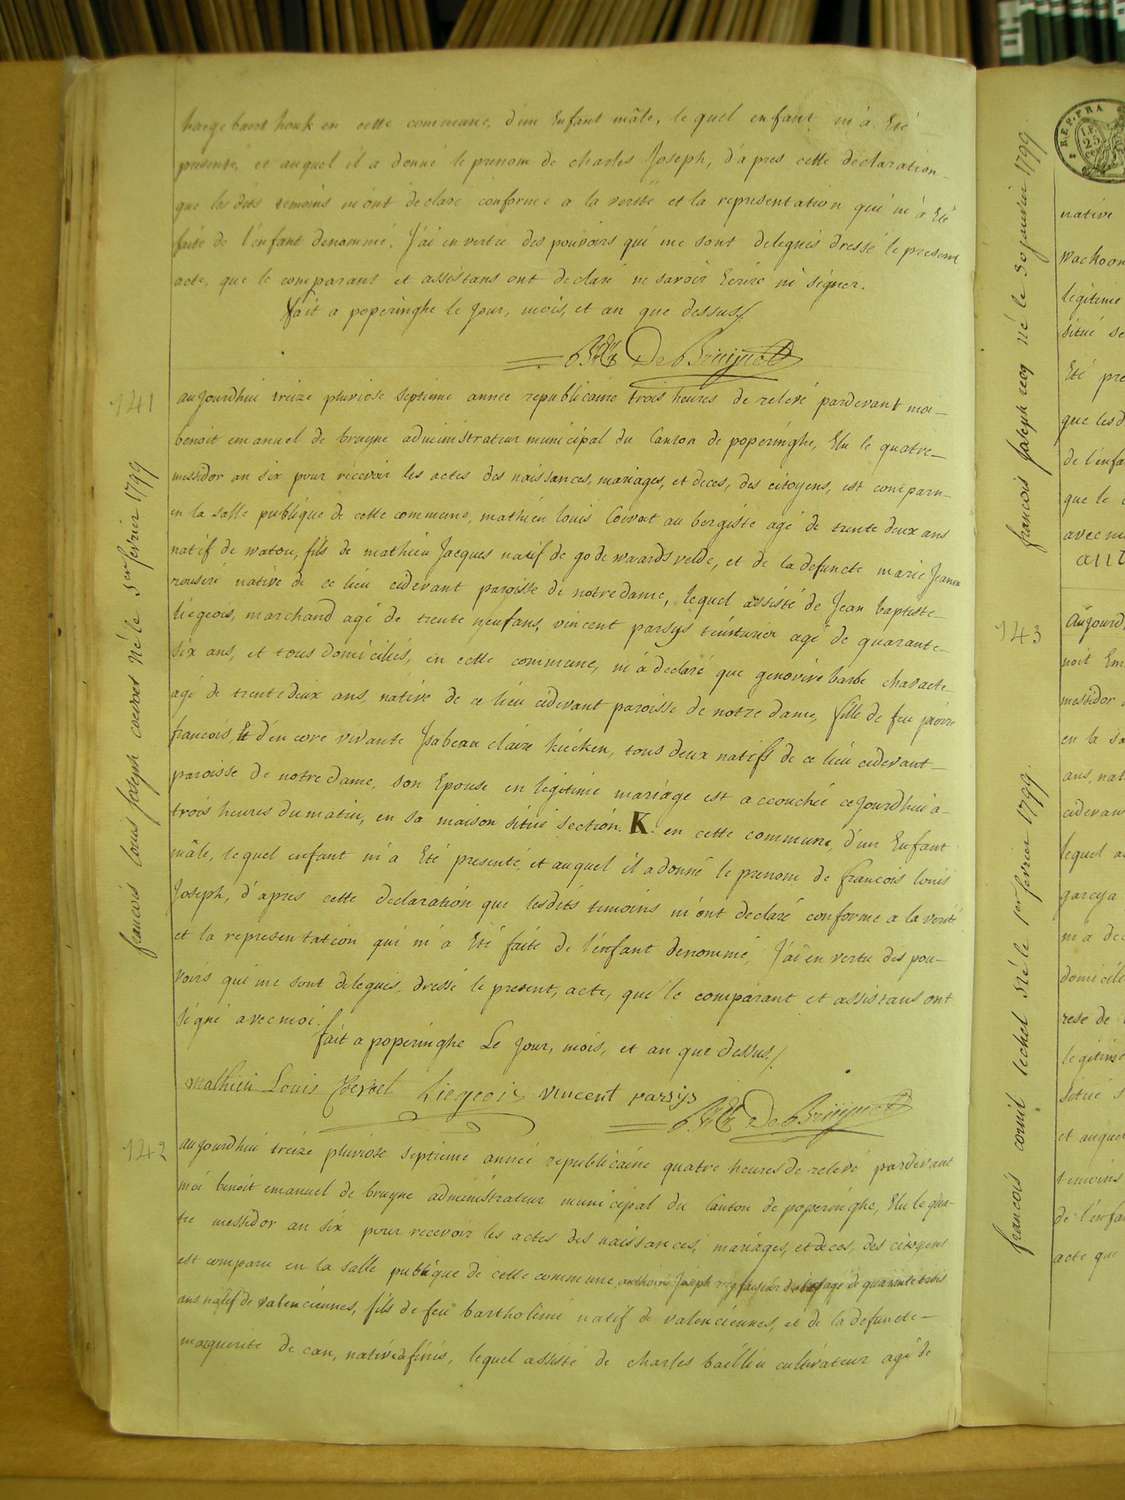 en cette commune, d'un Enfant mâle, le quel enfant m'à Eté
presenté, et auquel il a donné le prenom de charles Joseph, d'après cette declaration
que les dits temoins m'ont declaré conforme a la verité et la representation qui m'à Eté
faite de l'enfant denommé. J'ai en vertu des pouvoirs qui me sont delegués dressé le present
acte, que le comparant et assistans ont declaré ne savoir Ecrire ni signer.
fait a poperinghe le jour, mois, et an que dessus/.
De Bruijne
141
aujourdhui treize pluviose septieme année republicaine trois heures de relevé pardevant moi
benoit emanuel de bruyne administrateur municipal du Canton de poperinghe, Elu le quatre
messidor an six pour récevoir les actes des naissances, mariages, et deces, des citoyens, est comparu
en la salle publique de cette commune, mathieu louis Coevoet aubergiste agé de trente deux ans
natif de watou, fils de mathieu Jacques natif de godewaardsvelde, et de la defuncte marie Jeanne
native de ce lieu cidevant paroisse de notre dame, lequel assisté de Jean baptiste
liegeois, marchand agé de trente neuf ans, vincent parsys teinturier agé de quarante
six ans, et tous domiciliés, en cette commune, m'à declaré que genovive barbe
agé de trente deux ans, native de ce lieu cidevant paroisse de notre dame, fille de feu pierre
francois, et d'encore vivante Isabeau claire kieken, tous deux natifs de ce lieu cidevant
paroisse de notre dame, son Epouse en legitime mariage est accouchée cejourdhui a
trois heures du matin, en sa maison située section K. en cette commune, d'un Enfant
mâle, lequel enfant m'a Eté presenté, et auquel il a donné le prenom de francois louis
Joseph, d'apres cette declaration que lesdits temoins m'ont declaré conforme a la verité
et la representation qui m'a Eté faite de l'enfant denommé, J'ai en vertu des pou-
voirs qui me sont delegués dressé le present, acte, que le comparant et assistans ont
signé avec moi.
fait a poperinghe Le jour, mois, et an que dessus/.
mathieu Louis Liegeois vincent parsijs
De Bruijne
francois louis joseph coevoet né le 1er février 1799
142
aujourdhui treize pluviose septieme année republicaine quatre heures de relevé pardevant
moi benoit emanuel de bruyne administrateur municipal du Canton de poperinghe, Elu le qua-
tre messidor an six pour recevoir les actes des naissances, mariages, et deces, des citoyens
est comparu en la salle publique de cette commune, Joseph agé de quarante trois
ans natif de valenciennes, fils de feu bartholeme natif de valenciennes, et de la defuncte
marguerite de can, native, lequel assisté de charles baillieu cultivateur agé de
francois joseph né le 30 janvier 1799
143
francois cornil né le 1er février 1799.
REP. FRA
25
native
legitime
situé se
Eté pre
que les d
de l'enfa
que le
avec m
aujourd
noit Em
messidor
en la sa
ans, nat
cidevan
lequel a
m'a de
domicilé
rese de
legitime
situé s
et auque
temoins
de l'enfa
acte que